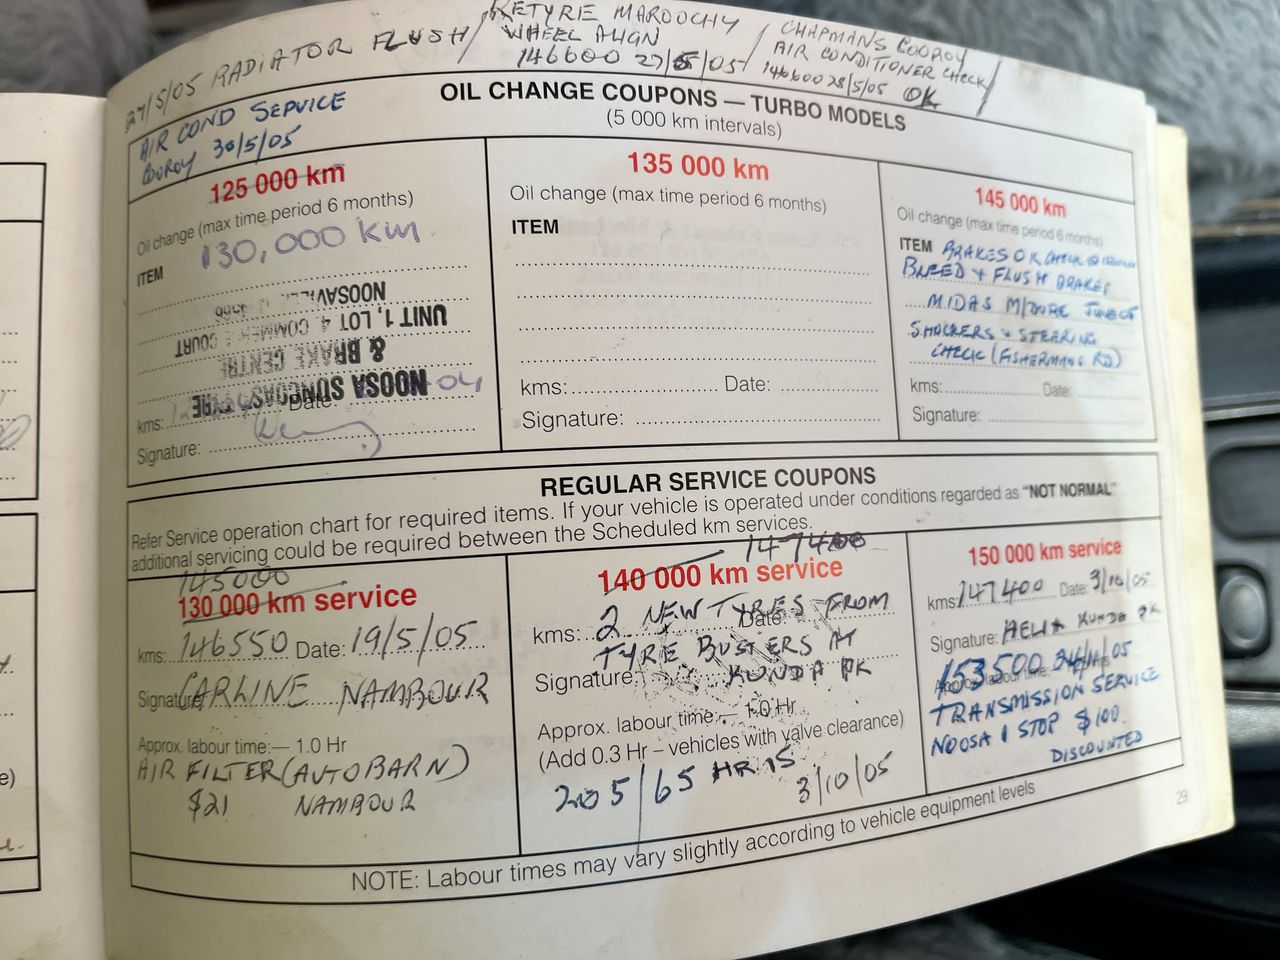 27/5/05 RADIATOR FLUSH/
KETYRE MAROOCHY
WHEEL ALIGN
146600 27/5/05
CHAPMANS COOROY
AIR CONDITIONER CHECK/
146600 28/5/05 OK
AIR COND SERVICE
COOROY 30/5/05
OIL CHANGE COUPONS — TURBO MODELS
(5 000 km intervals)
125 000 km
Oil change (max time period 6 months)
130,000 km
ITEM
NOOSA SUNCOAST TYRE
& BRAKE CENTRE
UNIT 1, LOT 4 COURT
NOOSAVILLE
kms: Date: 04
Signature:
135 000 km
Oil change (max time period 6 months)
ITEM
kms: Date:
Signature:
145 000 km
Oil change (max time period 6 months)
ITEM BRAKES OK CHECK @
BLEED + FLUSH BRAKES
MIDAS M/DORE JUNE 05
SHOCKERS & STEERING
CHECK (FISHERMANS RD)
kms: Date:
Signature:
REGULAR SERVICE COUPONS
Refer Service operation chart for required items. If your vehicle is operated under conditions regarded as "NOT NORMAL"
additional servicing could be required between the Scheduled km services.
145000
130 000 km service
kms: 146550 Date: 19/5/05
Signature: CARLINE NAMBOUR
Approx. labour time:— 1.0 Hr
AIR FILTER (AUTOBARN)
$21 NAMBOUR
147400
140 000 km service
kms: 2 NEW TYRES FROM
Date:
TYRE BUSTERS AT
Signature: KUNDA PK
Approx. labour time:— 1.0 Hr
(Add 0.3 Hr – vehicles with valve clearance)
205/65 HR 15
3/10/05
150 000 km service
kms: 147400 Date: 3/10/05
Signature: KUNDA PK
153500 05
TRANSMISSION SERVICE
NOOSA 1 STOP $100
DISCOUNTED
NOTE: Labour times may vary slightly according to vehicle equipment levels
29